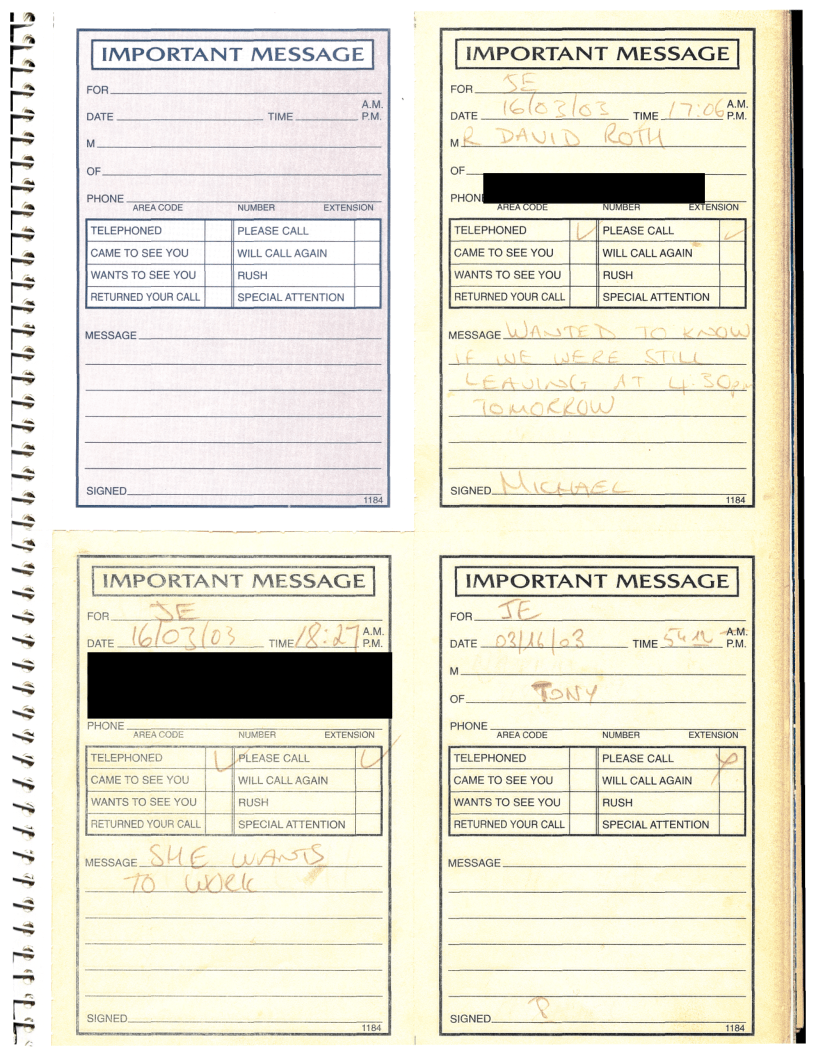 IMPORTANT MESSAGE
FOR
A.M.
DATE TIME P.M.
M
OF
PHONE
AREA CODE NUMBER EXTENSION
TELEPHONED PLEASE CALL
CAME TO SEE YOU WILL CALL AGAIN
WANTS TO SEE YOU RUSH
RETURNED YOUR CALL SPECIAL ATTENTION
MESSAGE
SIGNED
1184
IMPORTANT MESSAGE
FOR JE
A.M.
DATE 16/03/03 TIME 17:06 P.M.
MR DAVID ROTH
OF
PHONE
AREA CODE NUMBER EXTENSION
TELEPHONED ✓ PLEASE CALL ✓
CAME TO SEE YOU WILL CALL AGAIN
WANTS TO SEE YOU RUSH
RETURNED YOUR CALL SPECIAL ATTENTION
MESSAGE WANTED TO KNOW
IF WE WERE STILL
LEAVING AT 4.30pm
TOMORROW
SIGNED MICHAEL
1184
IMPORTANT MESSAGE
FOR JE
A.M.
DATE 16/03/03 TIME 18:27 P.M.
PHONE
AREA CODE NUMBER EXTENSION
TELEPHONED ✓ PLEASE CALL ✓
CAME TO SEE YOU WILL CALL AGAIN
WANTS TO SEE YOU RUSH
RETURNED YOUR CALL SPECIAL ATTENTION
MESSAGE SHE WANTS
TO WORK
SIGNED
1184
IMPORTANT MESSAGE
FOR JE
A.M.
DATE 03/16/03 TIME P.M.
M
OF TONY
PHONE
AREA CODE NUMBER EXTENSION
TELEPHONED PLEASE CALL
CAME TO SEE YOU WILL CALL AGAIN
WANTS TO SEE YOU RUSH
RETURNED YOUR CALL SPECIAL ATTENTION
MESSAGE
SIGNED P
1184